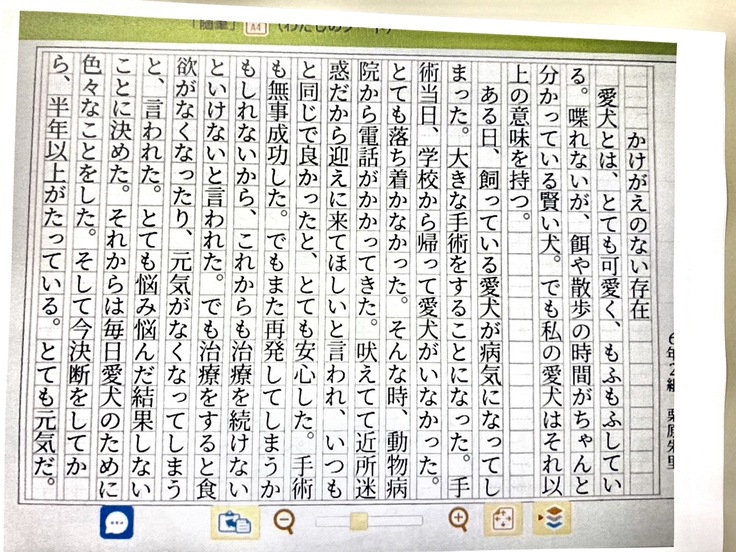 「随筆」 A4 (わたしのノート)
6年2組
かけがえのない存在
愛犬とは、とても可愛く、もふもふしてい
る。喋れないが、餌や散歩の時間がちゃんと
分かっている賢い犬。でも私の愛犬はそれ以
上の意味を持つ。
ある日、飼っている愛犬が病気になってし
まった。大きな手術をすることになった。手
術当日、学校から帰って愛犬がいなかった。
とても落ち着かなかった。そんな時、動物病
院から電話がかかってきた。吠えてて近所迷
惑だから迎えに来てほしいと言われ、いつも
と同じで良かったと、とても安心した。手術
も無事成功した。でもまた再発してしまうか
もしれないから、これからも治療を続けない
といけないと言われた。でも治療をすると食
欲がなくなったり、元気がなくなってしまう
と、言われた。とても悩み悩んだ結果しない
ことに決めた。それからは毎日愛犬のために
色々なことをした。そして今決断をしてか
ら、半年以上がたっている。とても元気だ。